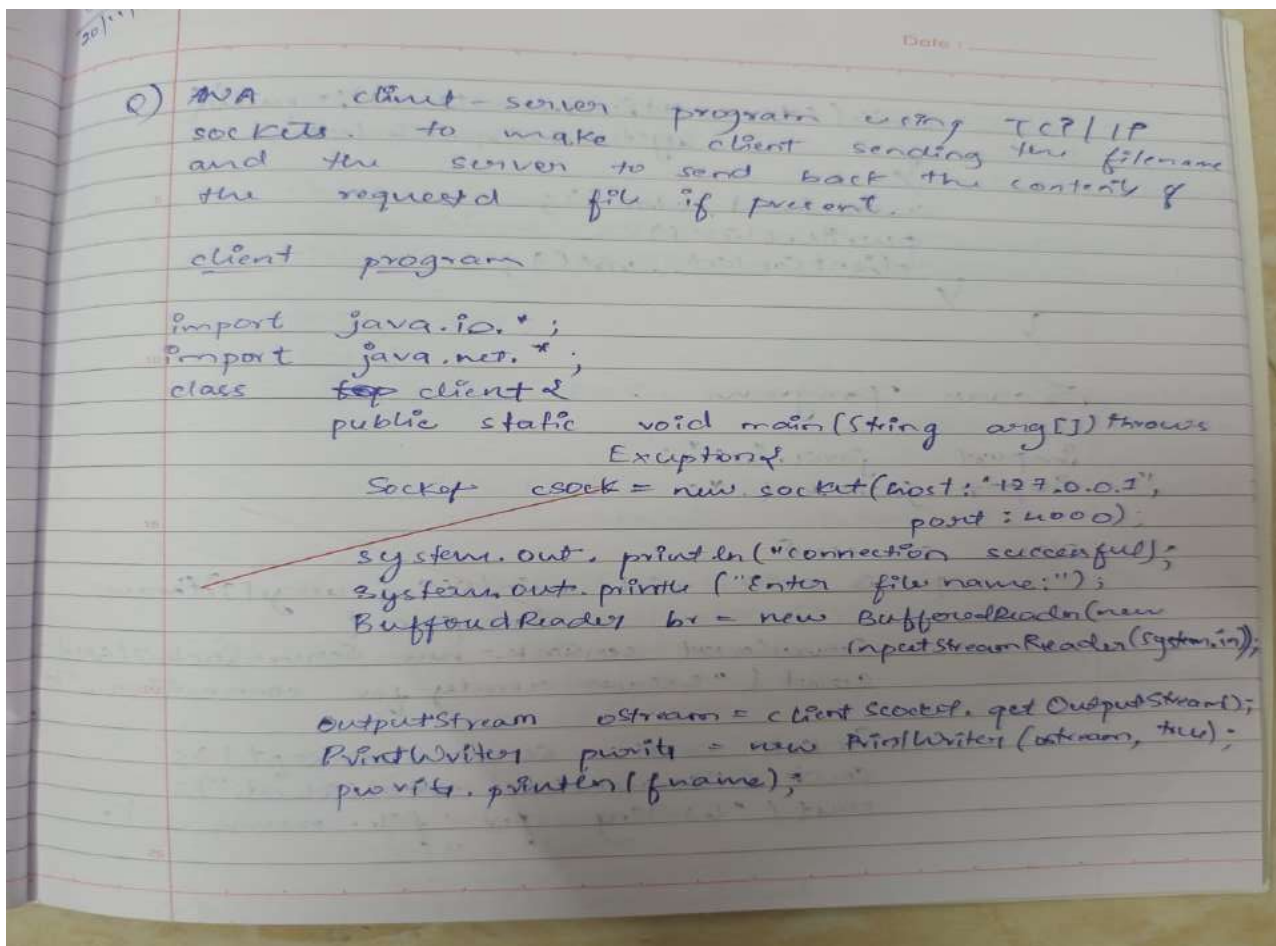 20/11
Date :
Q) AVA client-server program using TCP/IP
sockets. to make client sending the filename
and the server to send back the contents of
the requestd file if present.
client program
import java.io.* ;
import java.net.* ;
class client {
public static void main(String arg[]) throws
Exception{
Socket csock = new socket(host: "127.0.0.1",
port : 4000);
system.out.println("connection successful);
system.out.println ("Enter file name:");
BufferedReader br = new BufferedReader(new
InputStreamReader(system.in));
OutputStream ostream = client Scocket. get OutputStream();
PrintWriter pwrite = new PrintWriter (ostream, true);
pwrite. println(fname);